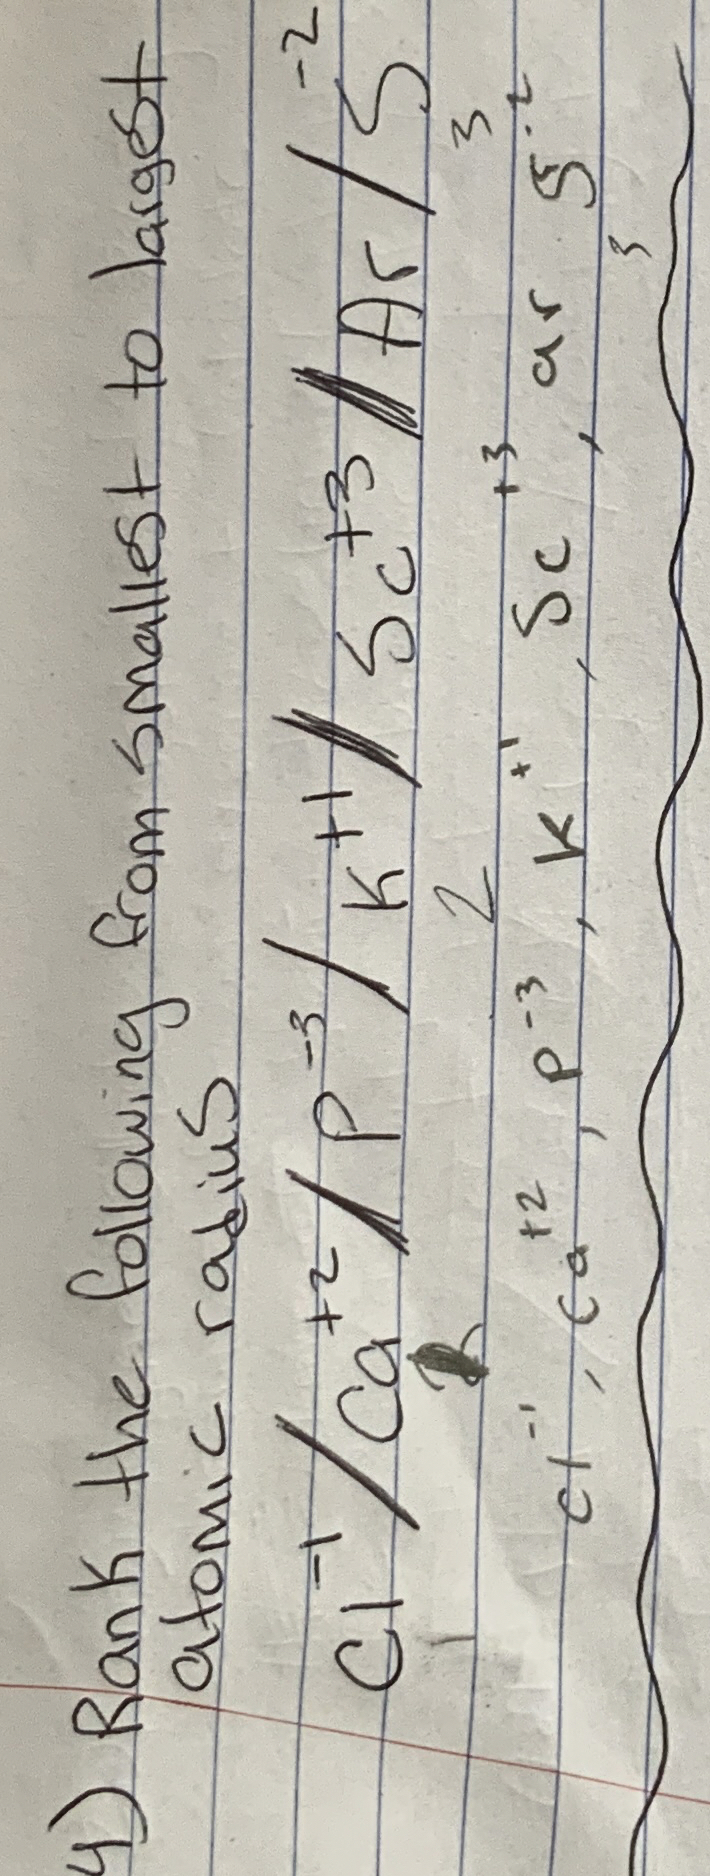 4) Rank the following from smallest to largest
atomic radius
Cl⁻¹ / Ca⁺² / P⁻³ / K⁺¹ / Sc⁺³ / Ar / S⁻²
1 2 3
Cl⁻¹, Ca⁺², P⁻³, K⁺¹, Sc⁺³, ar S⁻²
3